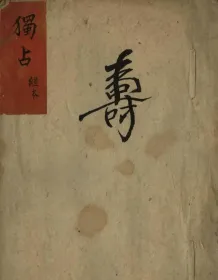 獨占
壽